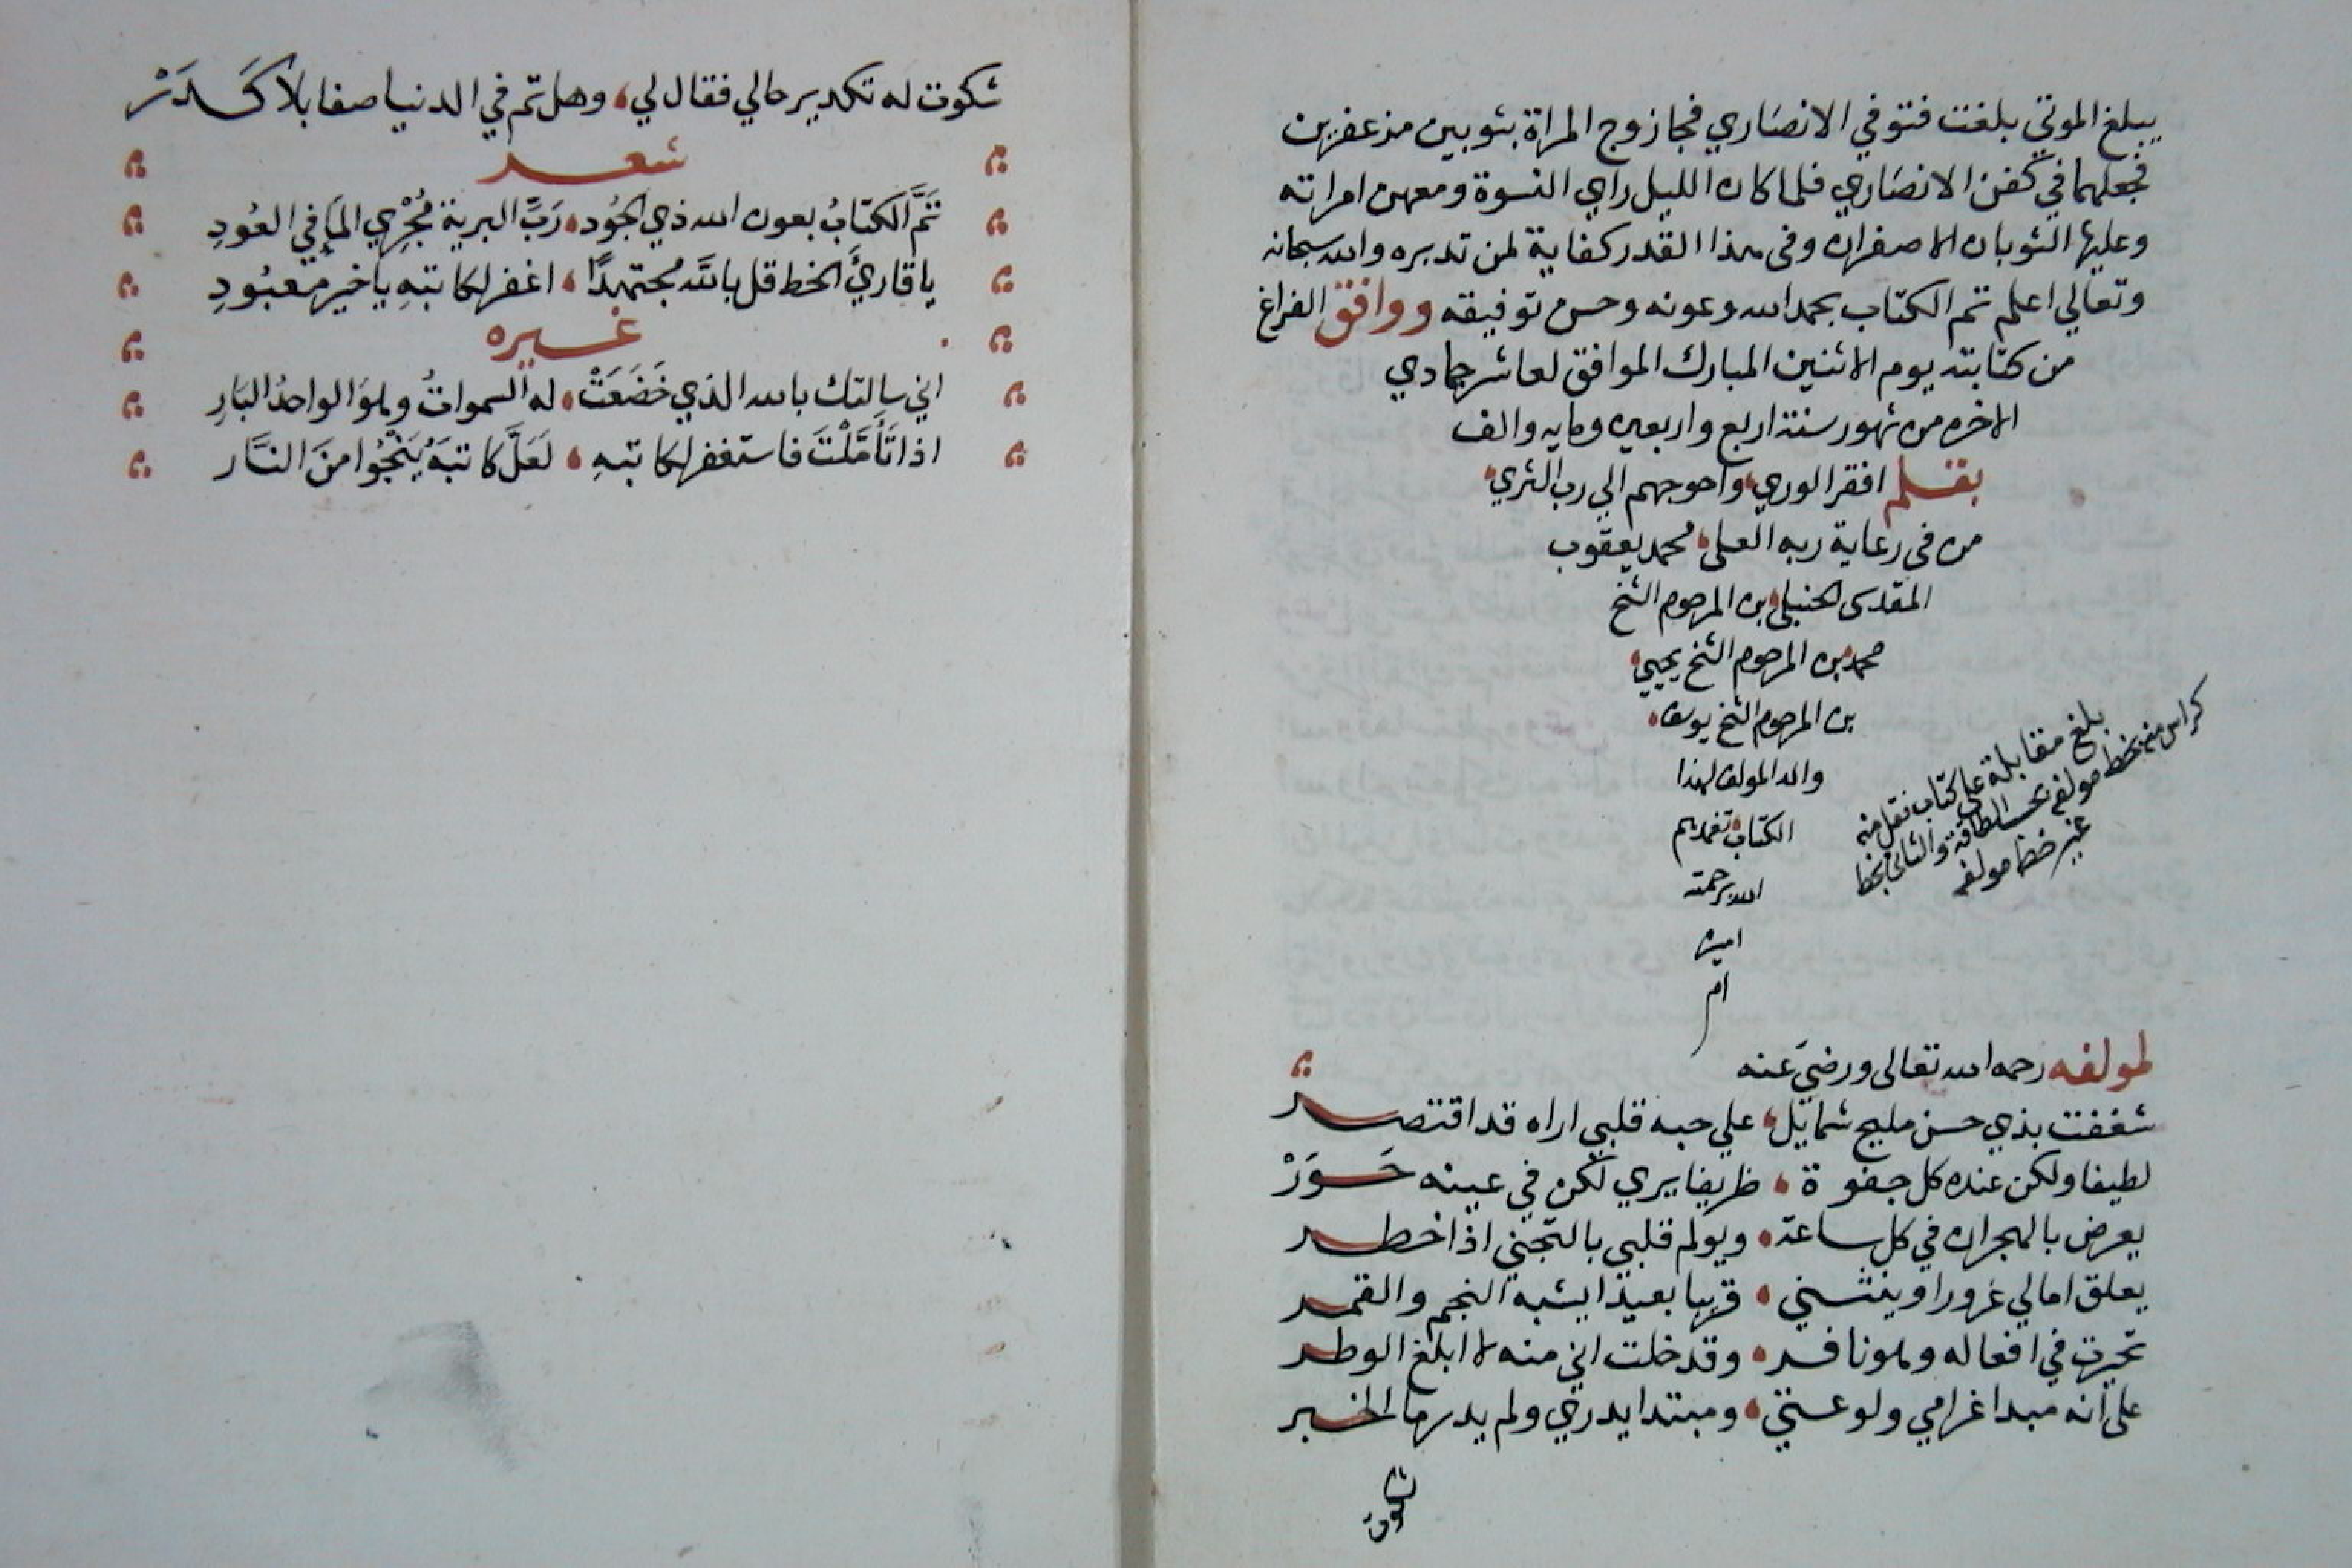 يبلغ الموتي بلغت فتوفي الانصاري فجا زوج المراة بثوبين مزعفرين
فجعلهما في كفن الانصاري فلما كان الليل راي النسوة ومعهن امراته
وعليها الثوبان الاصفران وفي هذا القدر كفاية لمن تدبره والله سبحانه
وتعالي اعلم تم الكتاب بحمد الله وعونه وحسن توفيقه ووافق الفراغ
من كتابته يوم الاثنين المبارك الموافق لعاشر جمادي
الاخره من شهور سنة اربع واربعين ومايه والف
بقلم افقر الوري واحوجهم الي رب الثري
من في رعاية ربه العلي محمد يعقوب
المقدسي الحنبلي بن المرحوم الشيخ
محمد بن المرحوم الشيخ يحيي
بن المرحوم الشيخ يوسف
والد المولف لهذا
الكتاب تغمدهم
الله برحمته
امين
ام
بلغ مقابلة على كتاب نقل منه
كراس منه بخط مولفه بحسب الطاقة والثاني بخط
غير خط مولفه
لمولفه رحمه الله تعالى ورضيَ عنه
شغفت بذي حسن مليح شمايل، علي حبه قلبي اراه قد اقتصر
لطيفا ولكن عنده كل جفوة، ظريفا يري لكن في عينه حَوَرْ
يعرض بالهجران في كل ساعة، ويولم قلبي بالتجني اذا خطر
يعلق امالي غرورا وينثني، قريبا بعيدا يشبه النجم والقمر
تحيرت في افعاله وهو نافر، وقد خلت اني منه لا ابلغ الوطر
على انه مبدا غرامي ولوعتي، ومبتدا يدري ولم يدر ما الخبر
شكوت
شكوت له تكدير حالي فقال لي، وهل تم في الدنيا صفا بلا كَدَرْ
شعر
تَمَّ الكتابُ بعون الله ذي الجُود، رَبِّ البرية مُجْرِي المَاءِ في العُودِ
يا قاريَ الخط قل بالله مُجتهدًا، اغفر لكاتبهِ يا خير معبُودِ
غيره
اني سالتك بالله الذي خَضَعَتْ، له السمواتُ وهوَ الواحدُ البَارِ
اذا تَأَمَّلْتَ فاستغفر لكاتبهِ، لَعَلَّ كاتبَهُ يَنْجُوا منَ النَّار